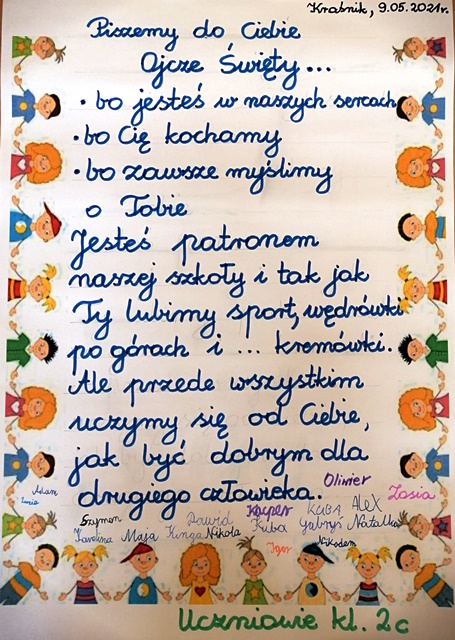 Kraśnik, 9.05.2021r.
Piszemy do Ciebie
Ojcze Święty...
• bo jesteś w naszych sercach
• bo Cię kochamy
• bo zawsze myślimy
o Tobie
Jesteś patronem
naszej szkoły i tak jak
Ty lubimy sport, wędrówki
po górach i ... kremówki.
Ale przede wszystkim
uczymy się od Ciebie,
jak być dobrym dla
drugiego człowieka.
Oliwier
Adam
Zuzia
Szymon
Dawid
Kacper
KUBA
ALEX
Zosia
Karolina
Maja
Kinga
Nikola
Kuba
Gabryś
Natalka
Igor
Nikodem
Uczniowie kl. 2c